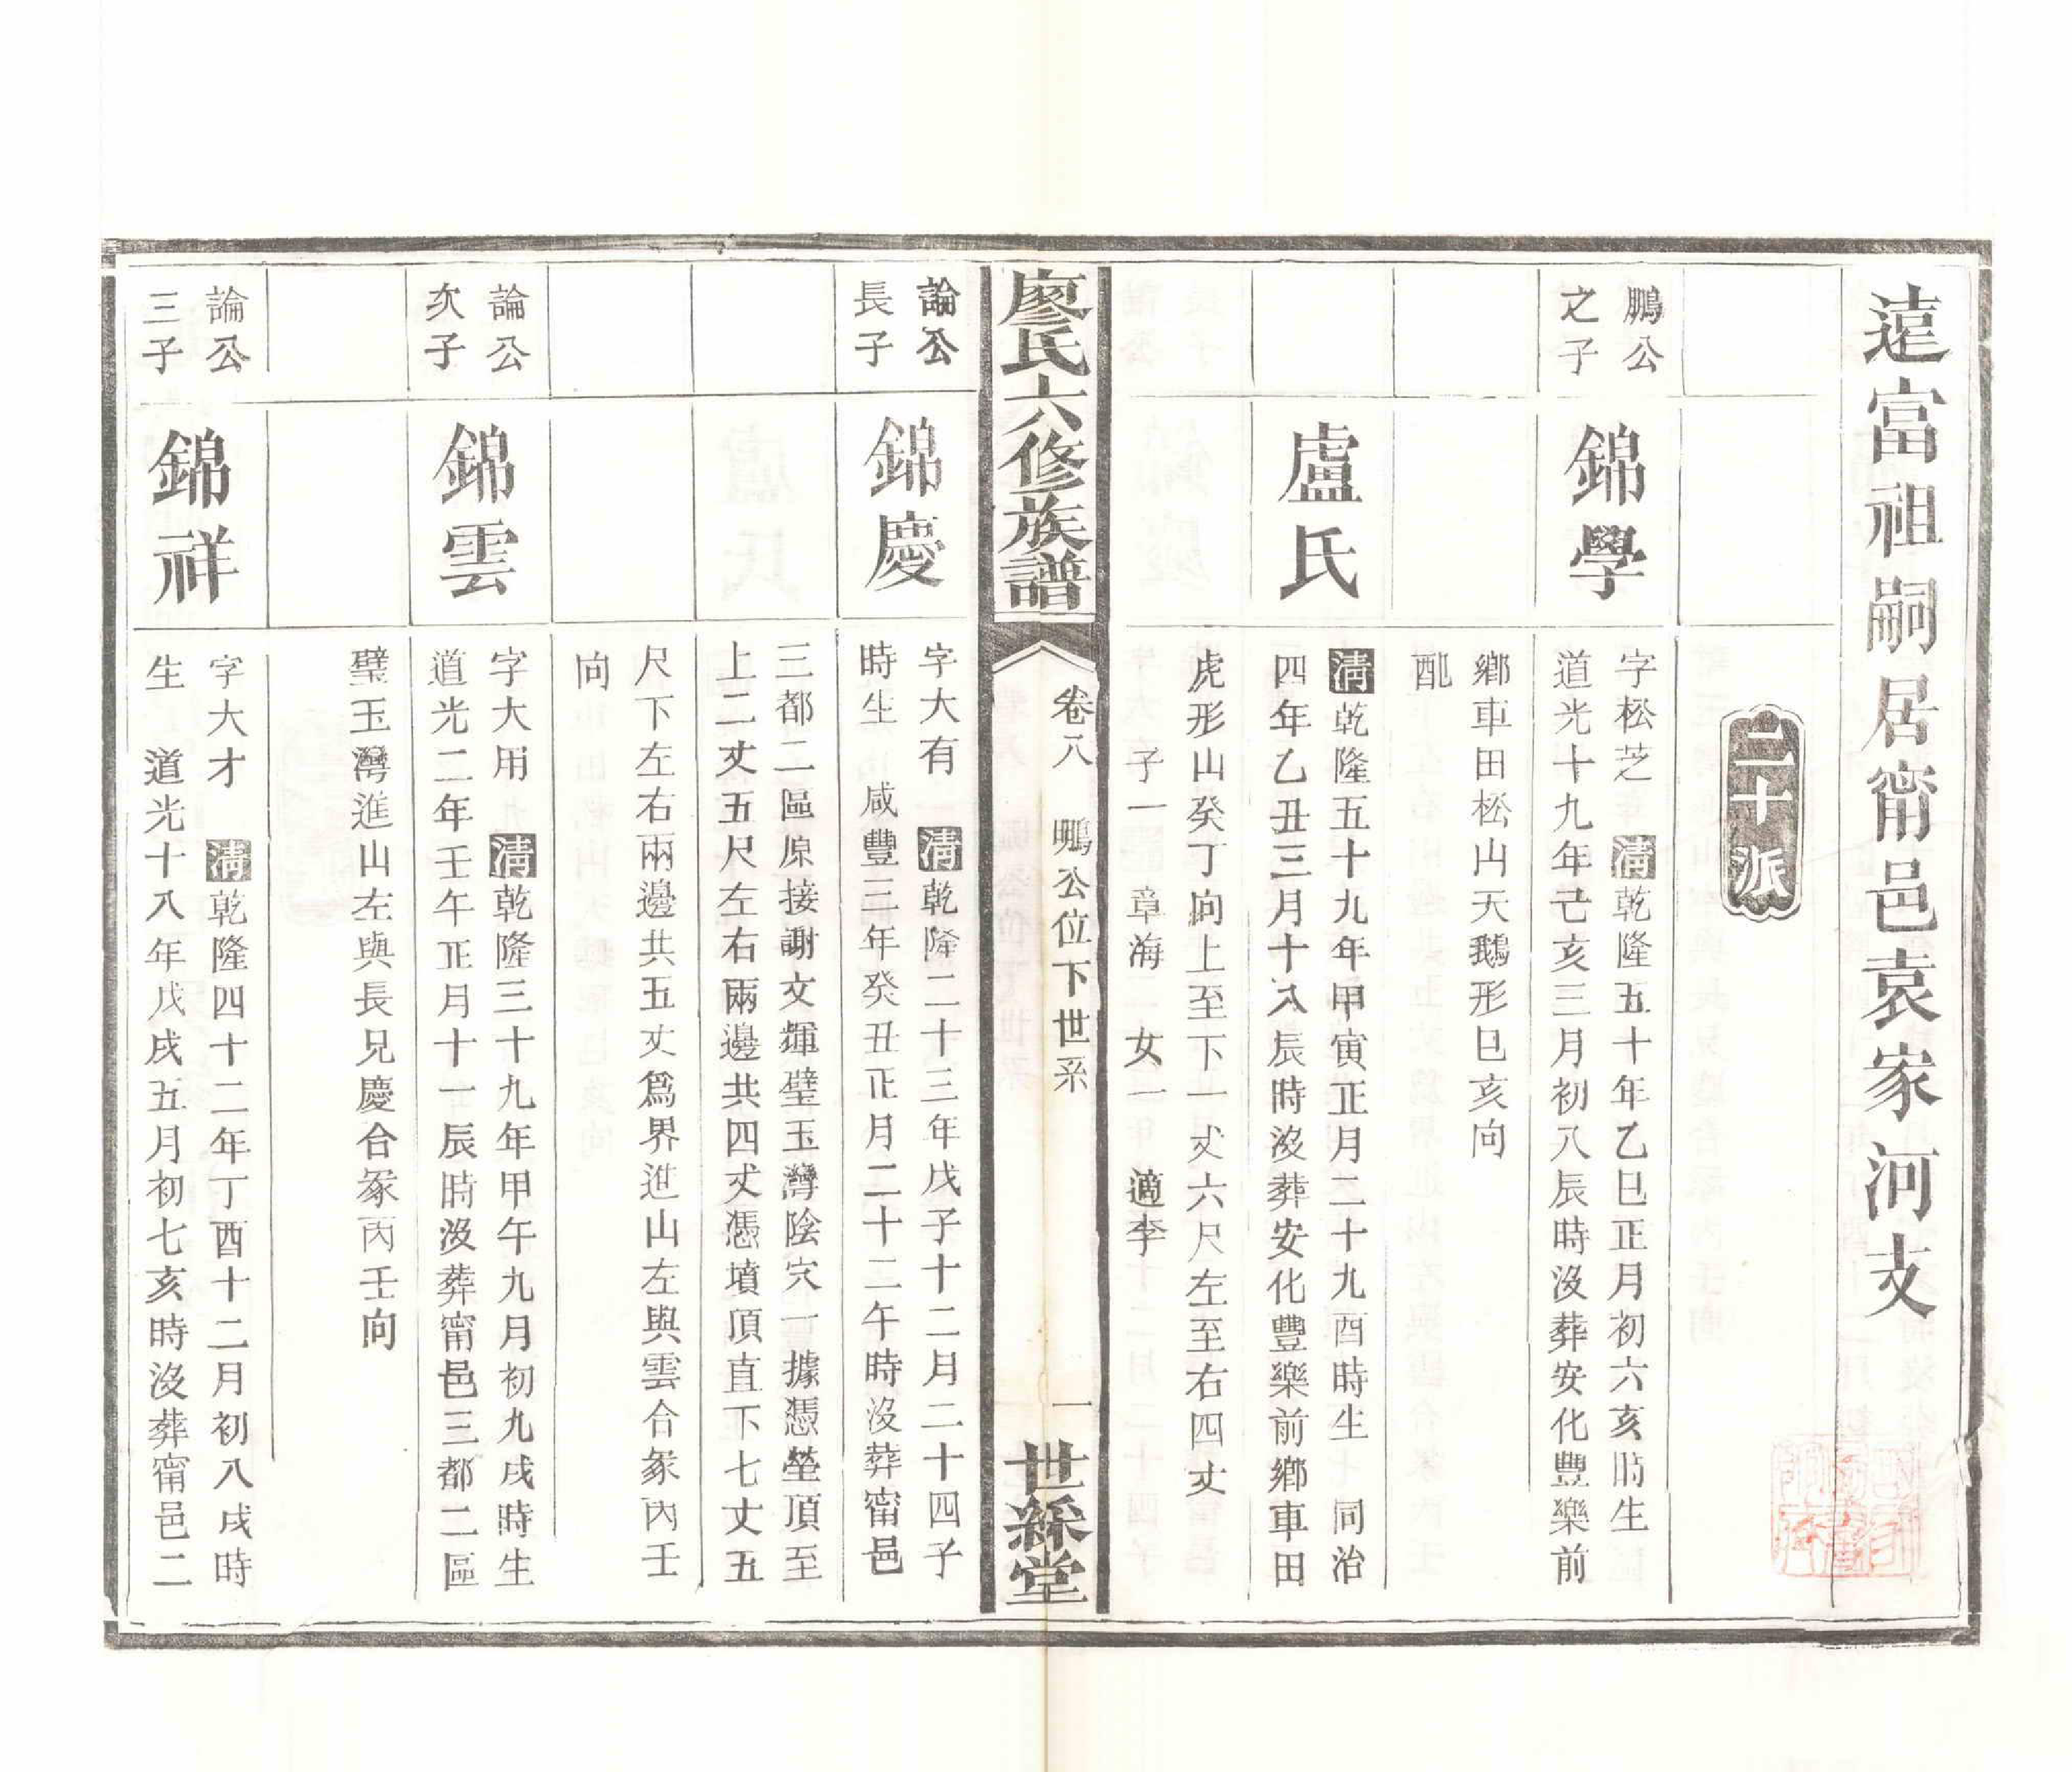 遠富祖嗣居甯邑袁家河支
二十派
鵬公
之子
錦學
字松芝　清乾隆五十年乙巳正月初六亥時生
道光十九年己亥三月初八辰時沒葬安化豐樂前
鄉車田松山天鵝形巳亥向
配
盧氏
清乾隆五十九年甲寅正月二十九酉時生　同治
四年乙丑三月十八辰時沒葬安化豐樂前鄉車田
虎形山癸丁向上至下一丈六尺左至右四丈
子一　章海　女一　適李
廖氏六修族譜
卷八　鵬公位下世系
一
世綵堂
論公
長子
錦慶
字大有　清乾隆二十三年戊子十二月二十四子
時生　咸豐三年癸丑正月二十二午時沒葬甯邑
三都二區原接謝文輝璧玉灣陰穴一據憑塋頂至
上二丈五尺左右兩邊共四丈憑墳頂直下七丈五
尺下左右兩邊共五丈爲界進山左與雲合冡丙壬
向
論公
次子
錦雲
字大用　清乾隆三十九年甲午九月初九戌時生
道光二年壬午正月十一辰時沒葬甯邑三都二區
璧玉灣進山左與長兄慶合冡丙壬向
論公
三子
錦祥
字大才　清乾隆四十二年丁酉十二月初八戌時
生　道光十八年戊戌五月初七亥時沒葬甯邑二